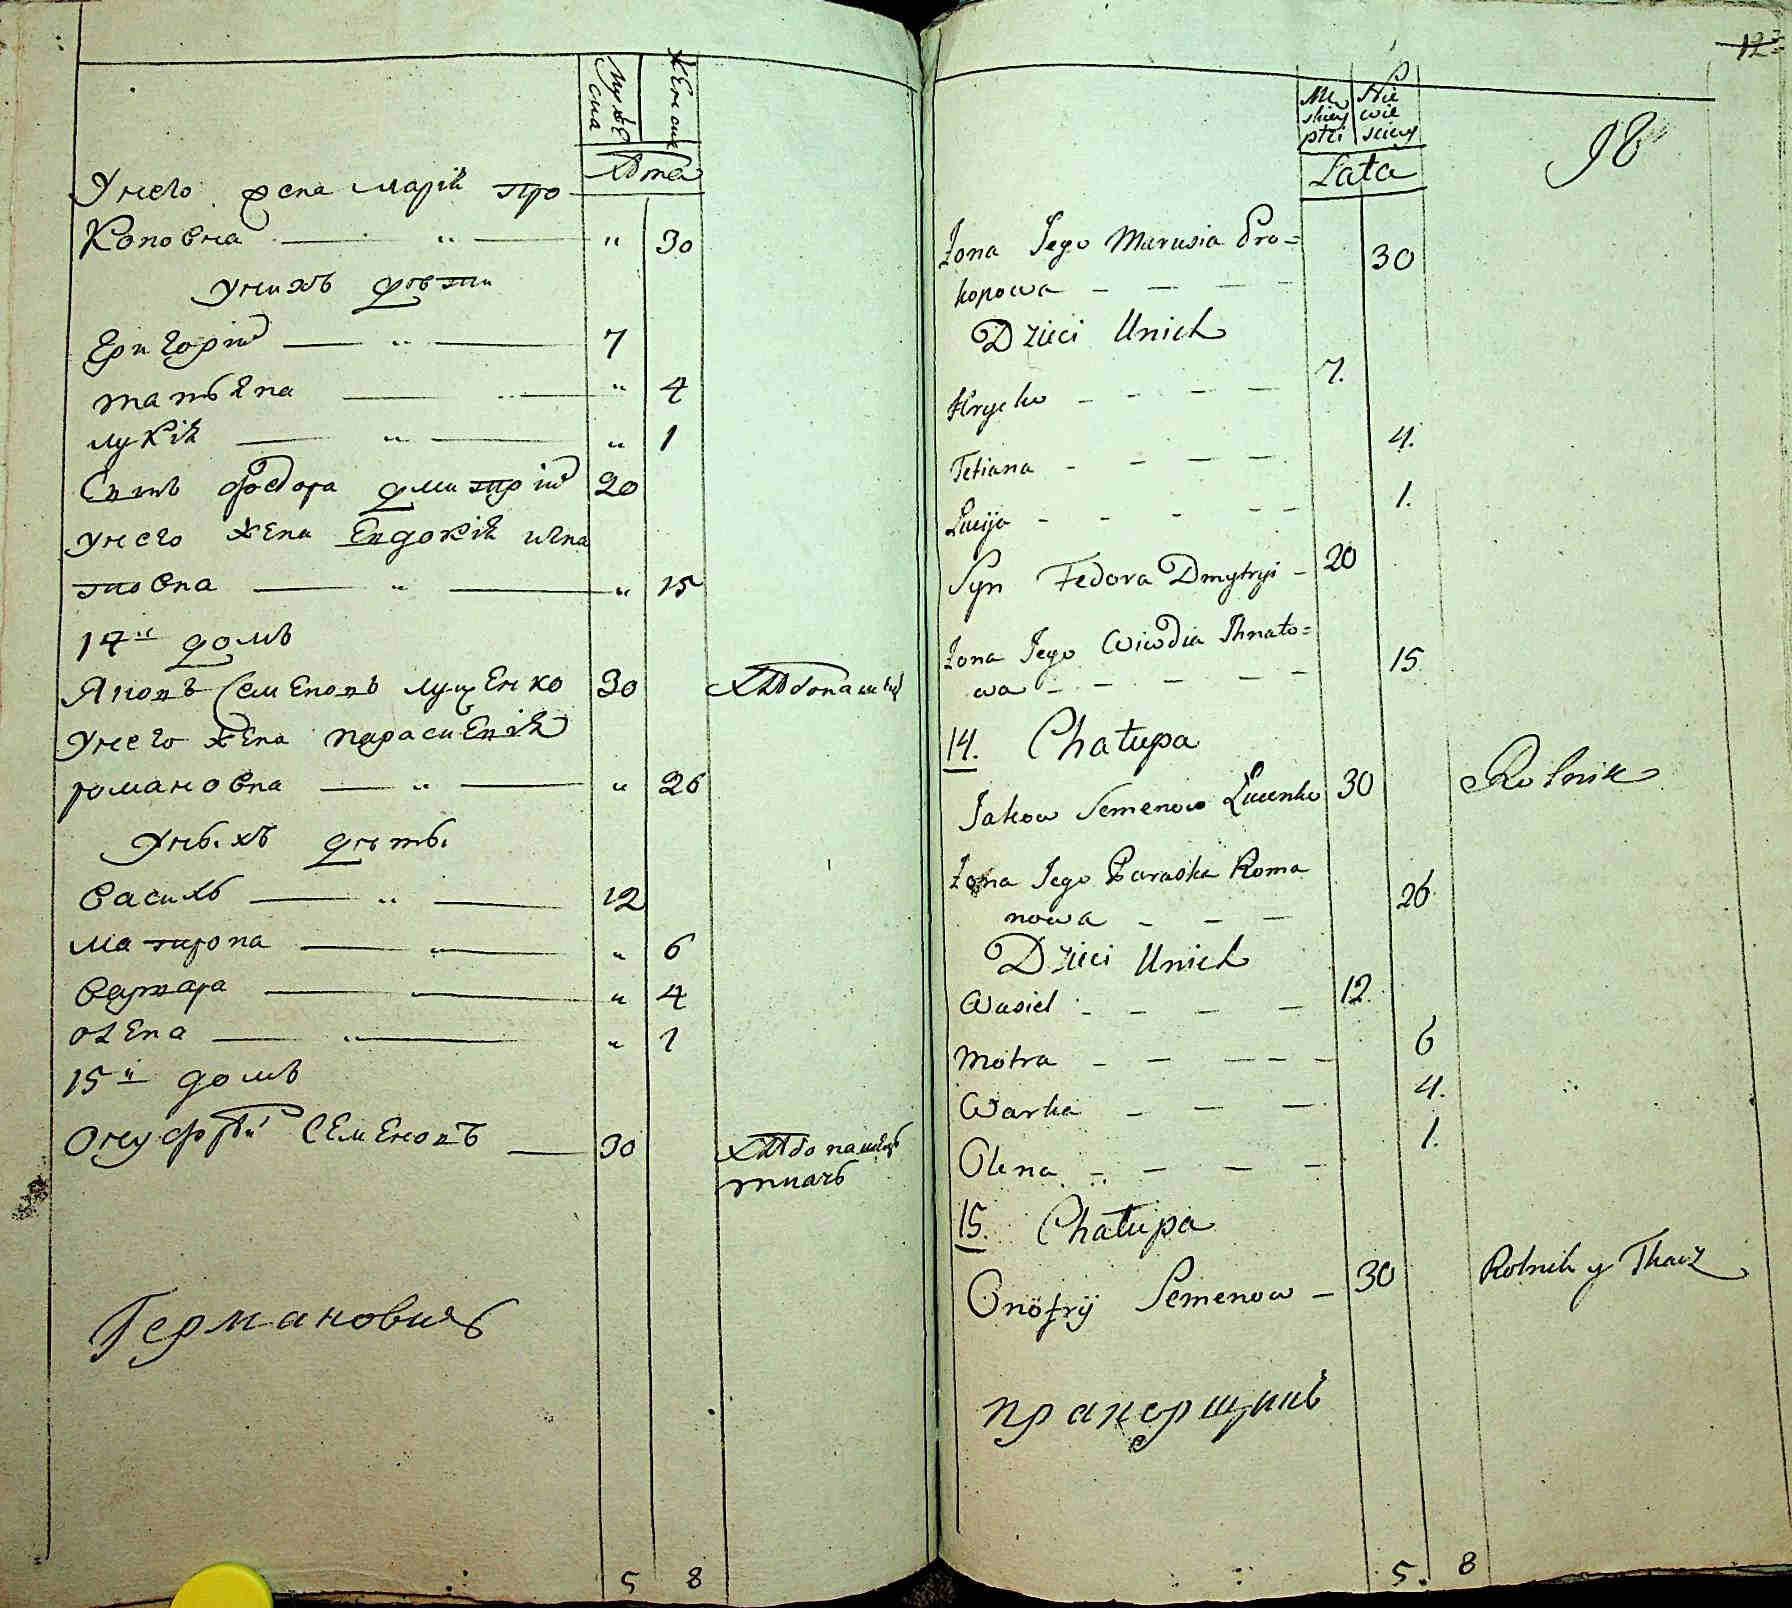 Мужеска
Женска
Лѣта
У него жена Марія Про
коповна — " — " 30
У них дѣти
Григорій — " — 7
татьяна — " 4
лукія — " — " 1
Сынъ Федора Дмитрій 20
У него жена Евдокія игна
товна — " — " 15
14й домъ
Яковъ Семеновъ луценко 30 Хлѣбопашец
У него жена парасцевія
романовна — " — " 26
У нихъ дѣти
василь — " — 12
матрона — " — " 6
варвара — " 4
олена — " — " 1
15й домъ
Онуфрій Семеновъ — 30 Хлѣбопашецъ
ткачь
Германовичь
5 8
12
Mę
skiey
płci
Nie
wie
sciey
Lata
98
Zona Jego Marusia Pro=
kopowa — — — — 30
Dzieci Unich
Hrycko — — — — 7.
Tetiana — — — — 4.
Lucija — — — — — 1.
Syn Fedora Dmytryi — 20
Zona Jego Wiwdia Ihnato=
wa — — — — — 15
14. Chałupa
Jakow Semenow Lucenko 30 Rolnik
Zona Jego Paraska Roma
nowa — — — 26
Dzieci Unich
Wasiel — — — — 12.
Motra — — — — — 6
Warka — — — 4.
Olena — — — — 1.
15. Chałupa
Onofrij Semenow — 30 Rolnik y Tkacz
прапорщикъ
5. 8